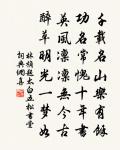 千載名山樂有餘
功名常愧十年書
英風凜凜無今古
醉草明光一夢如
林楨題太白書堂